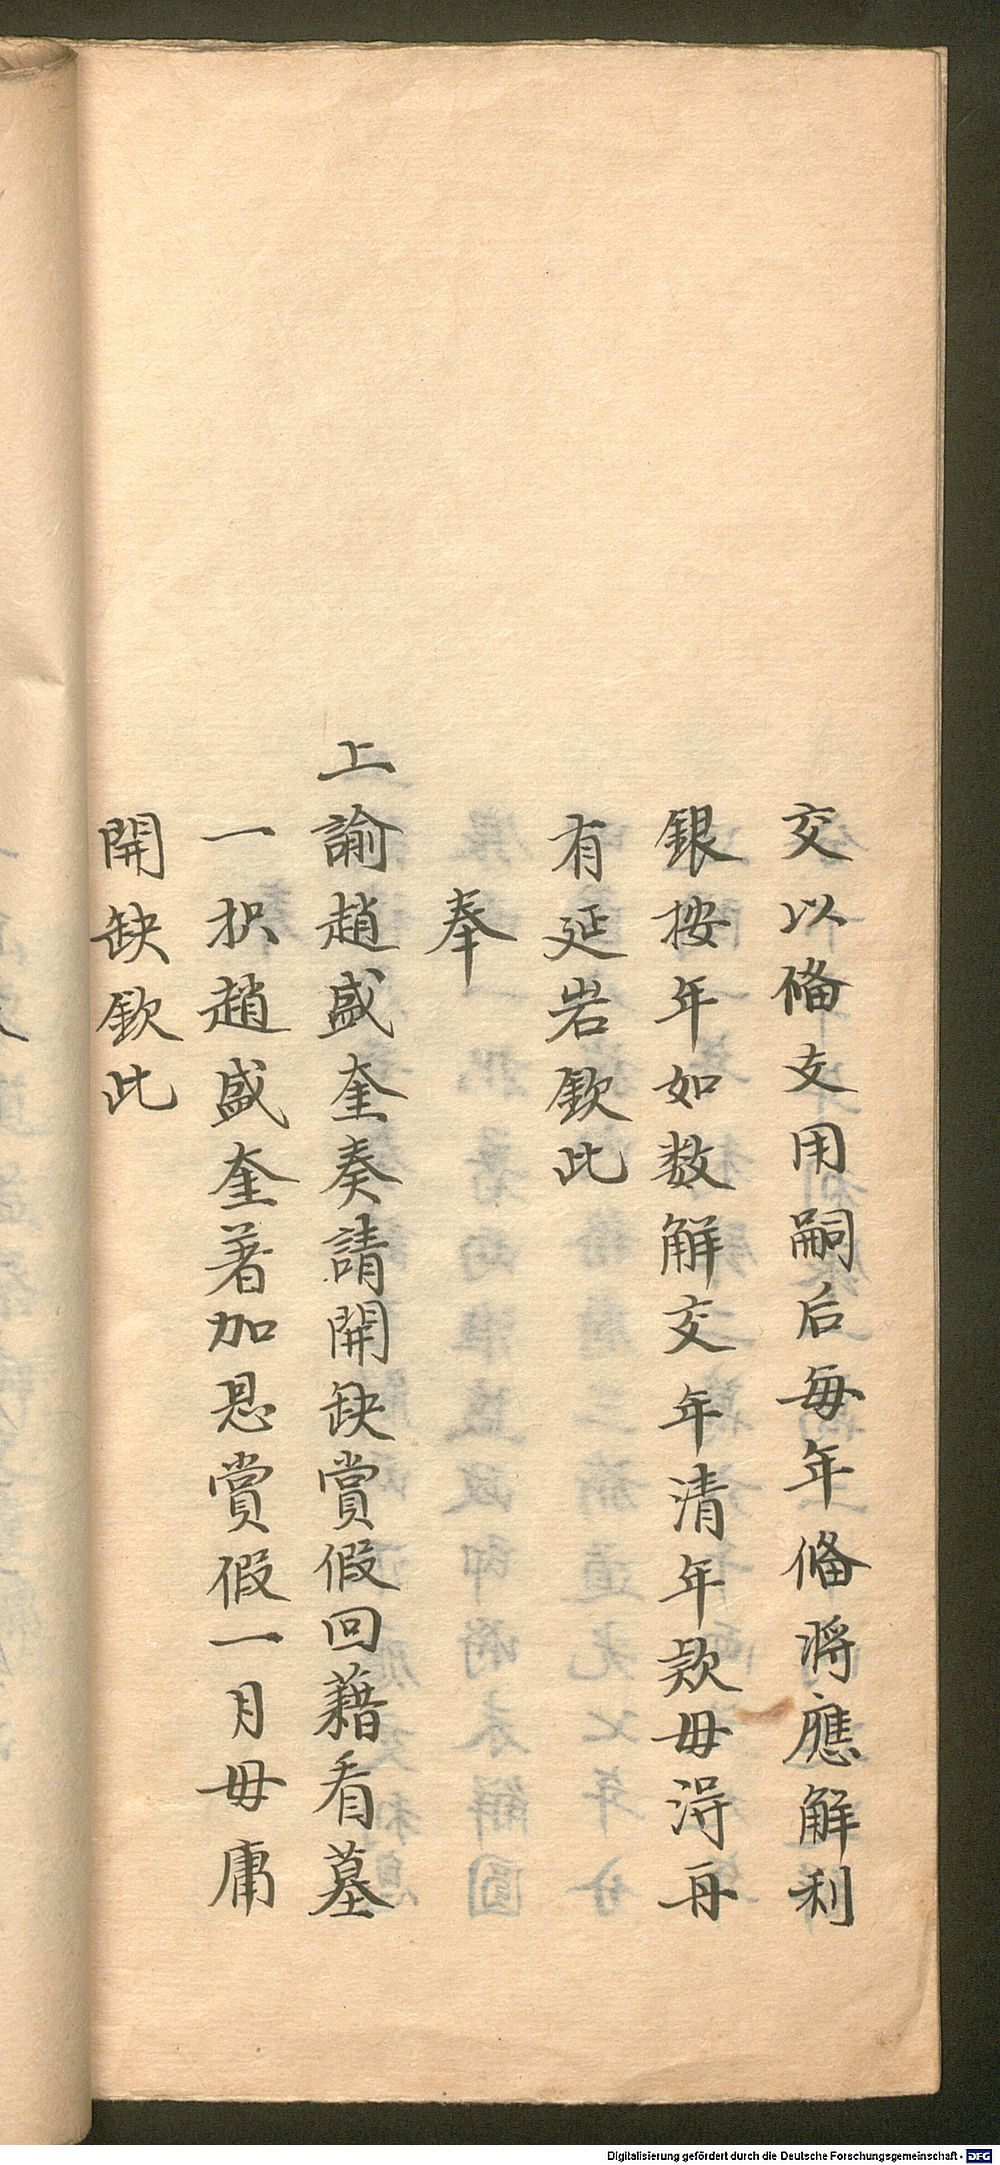 交以俻支用嗣后每年俻将應解利
銀按年如数解交年清年欵毋淂再
有延岩欽此
奉
上諭趙盛奎奏請開缺賞假回藉看墓
一抧趙盛奎著加恩賞假一月毋庸
開缺欽此
Digitalisierung gefördert durch die Deutsche Forschungsgemeinschaft - DFG